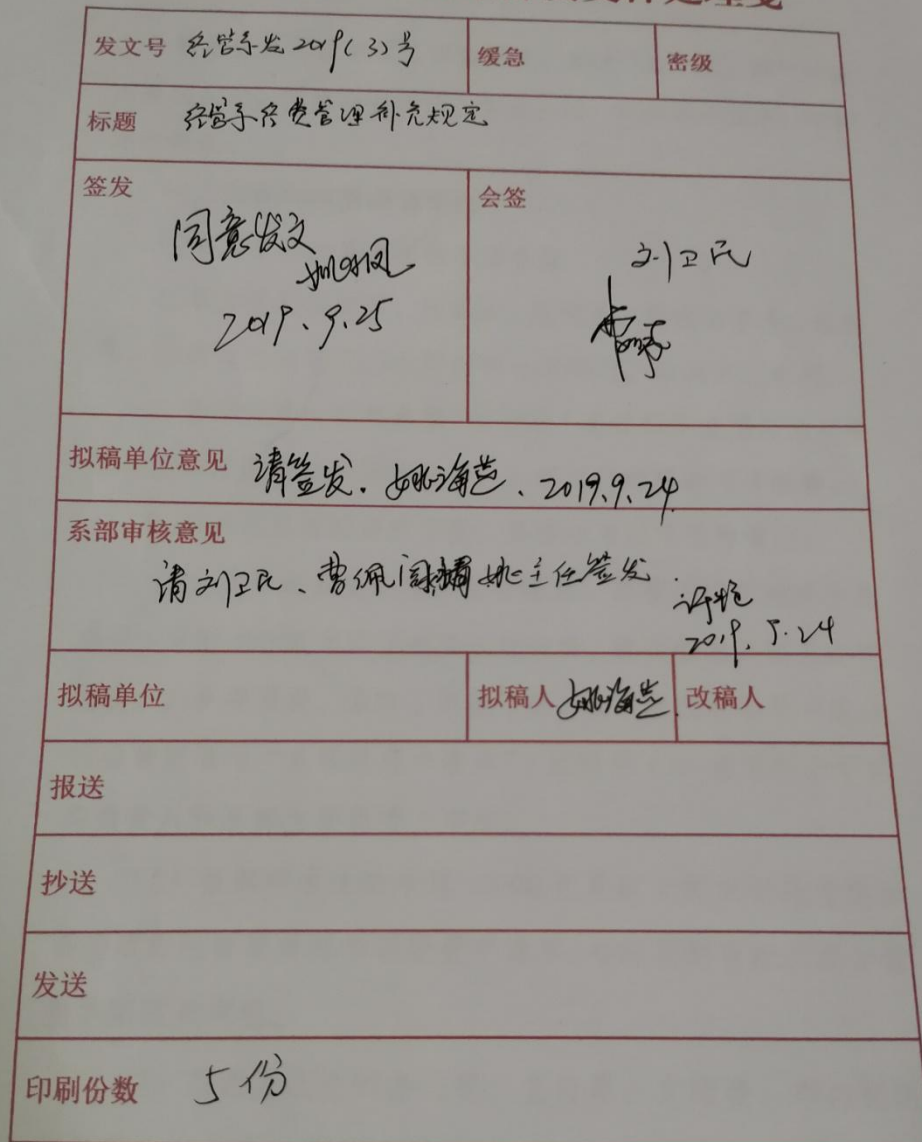 处理笺
发文号 经管系发2019(3)号 缓急 密级
标题 经管系经费管理补充规定
签发 会签
同意发文
2019.9.25
刘卫民
拟稿单位意见 请签发. 姚海燕. 2019.9.24
系部审核意见
请刘卫民、曹佩 姚主任签发.
2019.9.24
拟稿单位 拟稿人 姚海燕 改稿人
报送
抄送
发送
印刷份数 5份